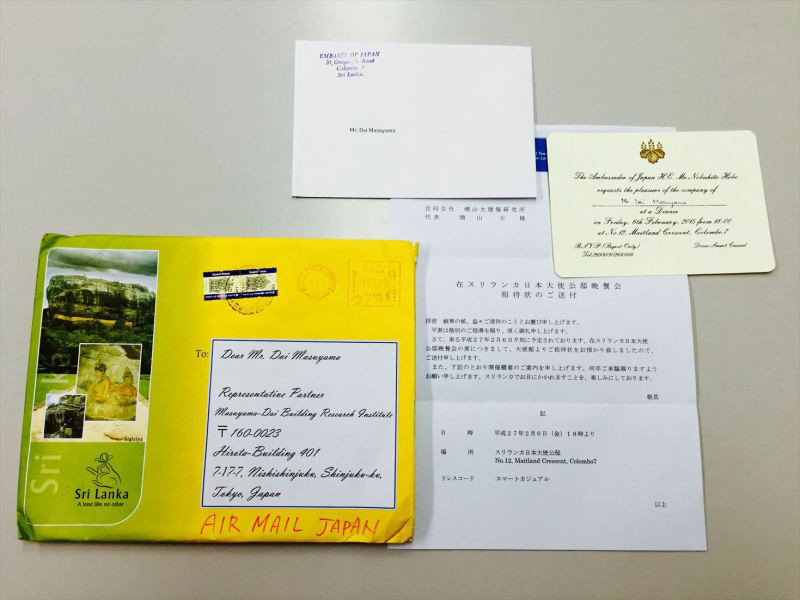 EMBASSY OF JAPAN
20, Gregory's Road
Colombo 7
Sri Lanka.
Mr. Dai Masuyama
The Ambassador of Japan H.E. Mr. Nobuhito Hobo
requests the pleasure of the company of
Mr. Dai Masuyama
at a Dinner
on Friday, 6th February, 2015 from 18:00
at No.12, Maitland Crescent, Colombo 7
R.S.V.P. (Regret Only)
Dress: Smart Casual
合同会社 増山大建築研究所
代表 増山 大 様
在スリランカ日本大使公邸晩餐会
招待状のご送付
拝啓 厳寒の候、益々ご清祥のこととお慶び申し上げます。
平素は格別のご指導を賜り、厚く御礼申し上げます。
さて、来る平成27年2月6日夕刻に予定されております、在スリランカ日本大使
公邸晩餐会の席につきまして、大使館よりご招待状をお預かり致しましたので、
ご送付申し上げます。
また、下記のとおり開催概要のご案内を申し上げます。何卒ご来臨賜りますよう
お願い申し上げます。スリランカでお目にかかれますことを、楽しみにしております。
敬具
記
日 時 平成27年2月6日(金)18時より
場 所 スリランカ日本大使公邸
No.12, Maitland Crescent, Colombo7
ドレスコード スマートカジュアル
以上
To:
Dear Mr. Dai Masuyama
Representative Partner
Masuyama-Dai Building Research Institute
〒160-0023
Hirota-Building 401
7-17-7, Nishishinjuku, Shinjuku-ku,
Tokyo, Japan
AIR MAIL JAPAN
Sri La
Sigiriya
Sri Lanka
A land like no other